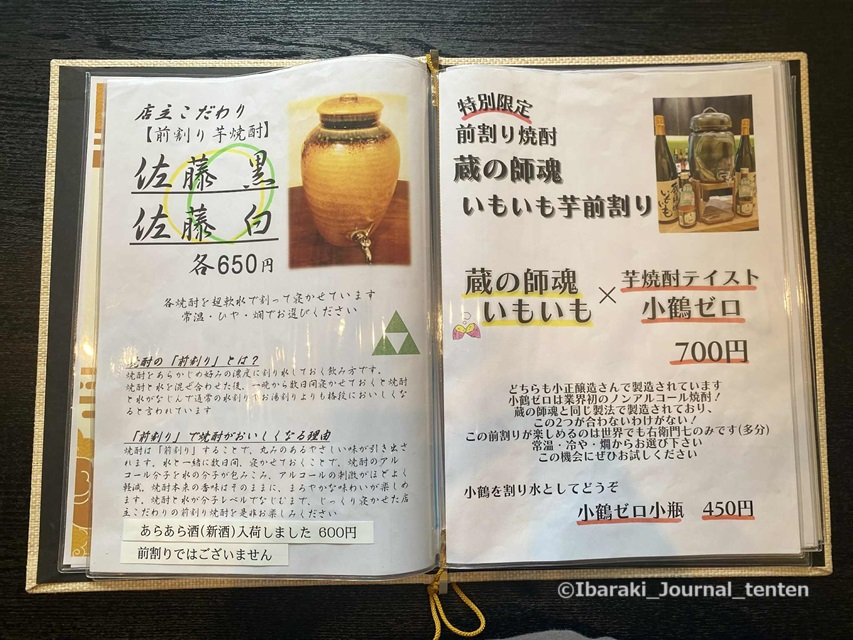 店主こだわり
【前割り芋焼酎】
佐藤 黒
佐藤 白
各650円
各焼酎を超軟水で割って寝かせています
常温・ひや・燗でお選びください
焼酎の「前割り」とは?
焼酎をあらかじめ好みの濃度に割り水しておく飲み方です。
焼酎と水を混ぜ合わせた後、一晩から数日間寝かせておくと焼酎
と水がなじんで通常の水割りやお湯割りよりも格段においしくな
ると言われています
「前割り」で焼酎がおいしくなる理由
焼酎は「前割り」することで、丸みのあるやさしい味が引き出さ
れます。水と一緒に数日間、寝かせておくことで、焼酎のアル
コール分子が水の分子が包みこみ、アルコールの刺激がほどよく
軽減。焼酎本来の香味はそのままに、まろやかな味わいが楽しめ
ます。焼酎と水が分子レベルでなじむまで、じっくり寝かせた店
主こだわりの前割り焼酎を是非お楽しみください
あらあら酒(新酒)入荷しました 600円
前割りではございません
特別限定
前割り焼酎
蔵の師魂
いもいも芋前割り
蔵の師魂
いもいも
×
芋焼酎テイスト
小鶴ゼロ
700円
どちらも小正醸造さんで製造されています
小鶴ゼロは業界初のノンアルコール焼酎!
蔵の師魂と同じ製法で製造されており、
この2つが合わないわけがない!
この前割りが楽しめるのは世界でも右衛門七のみです(多分)
常温・冷や・燗からお選び下さい
この機会にぜひお試しください
小鶴を割り水としてどうぞ
小鶴ゼロ小瓶 450円
©Ibaraki_Journal_tenten